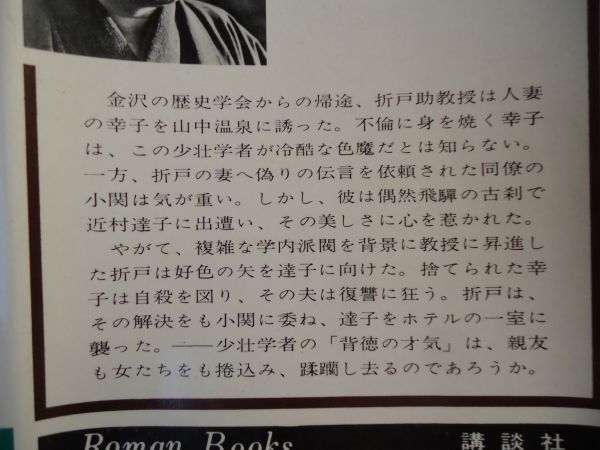 金沢の歴史学会からの帰途、折戸助教授は人妻
の幸子を山中温泉に誘った。不倫に身を焼く幸子
は、この少壮学者が冷酷な色魔だとは知らない。
一方、折戸の妻へ偽りの伝言を依頼された同僚の
小関は気が重い。しかし、彼は偶然飛驒の古刹で
近村達子に出遭い、その美しさに心を惹かれた。
やがて、複雑な学内派閥を背景に教授に昇進し
た折戸は好色の矢を達子に向けた。捨てられた幸
子は自殺を図り、その夫は復讐に狂う。折戸は、
その解決をも小関に委ね、達子をホテルの一室に
襲った。——少壮学者の「背徳の才気」は、親友
も女たちをも捲込み、蹂躙し去るのであろうか。
Roman Books 講談社